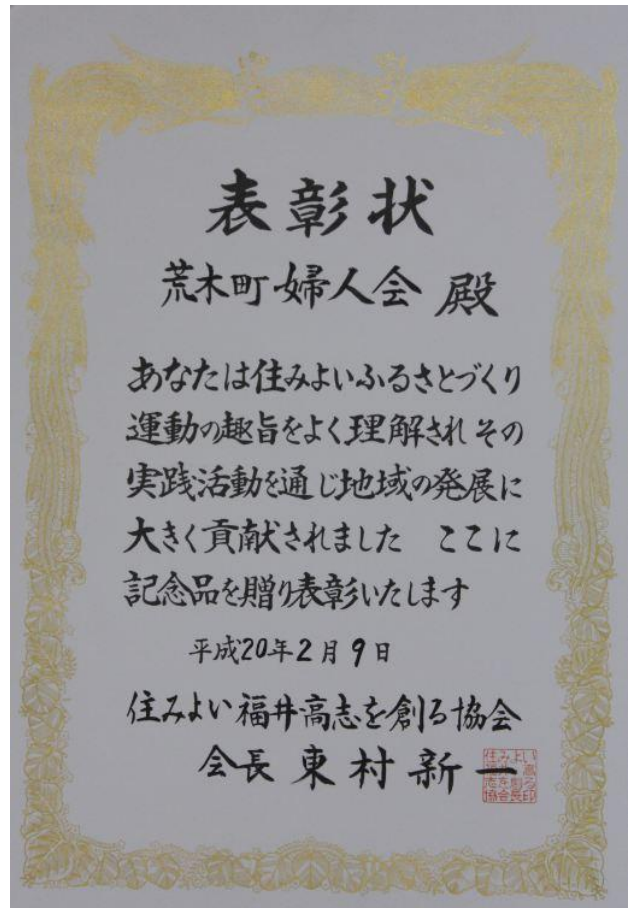 表彰状
荒木町婦人会 殿
あなたは住みよいふるさとづくり
運動の趣旨をよく理解されその
実践活動を通じ地域の発展に
大きく貢献されました　ここに
記念品を贈り表彰いたします
平成20年2月9日
住みよい福井高志を創る協会
会長 東村新一